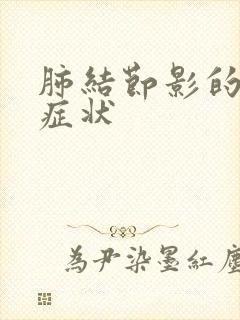 肺結節影的
症状
為尹染墨紅塵